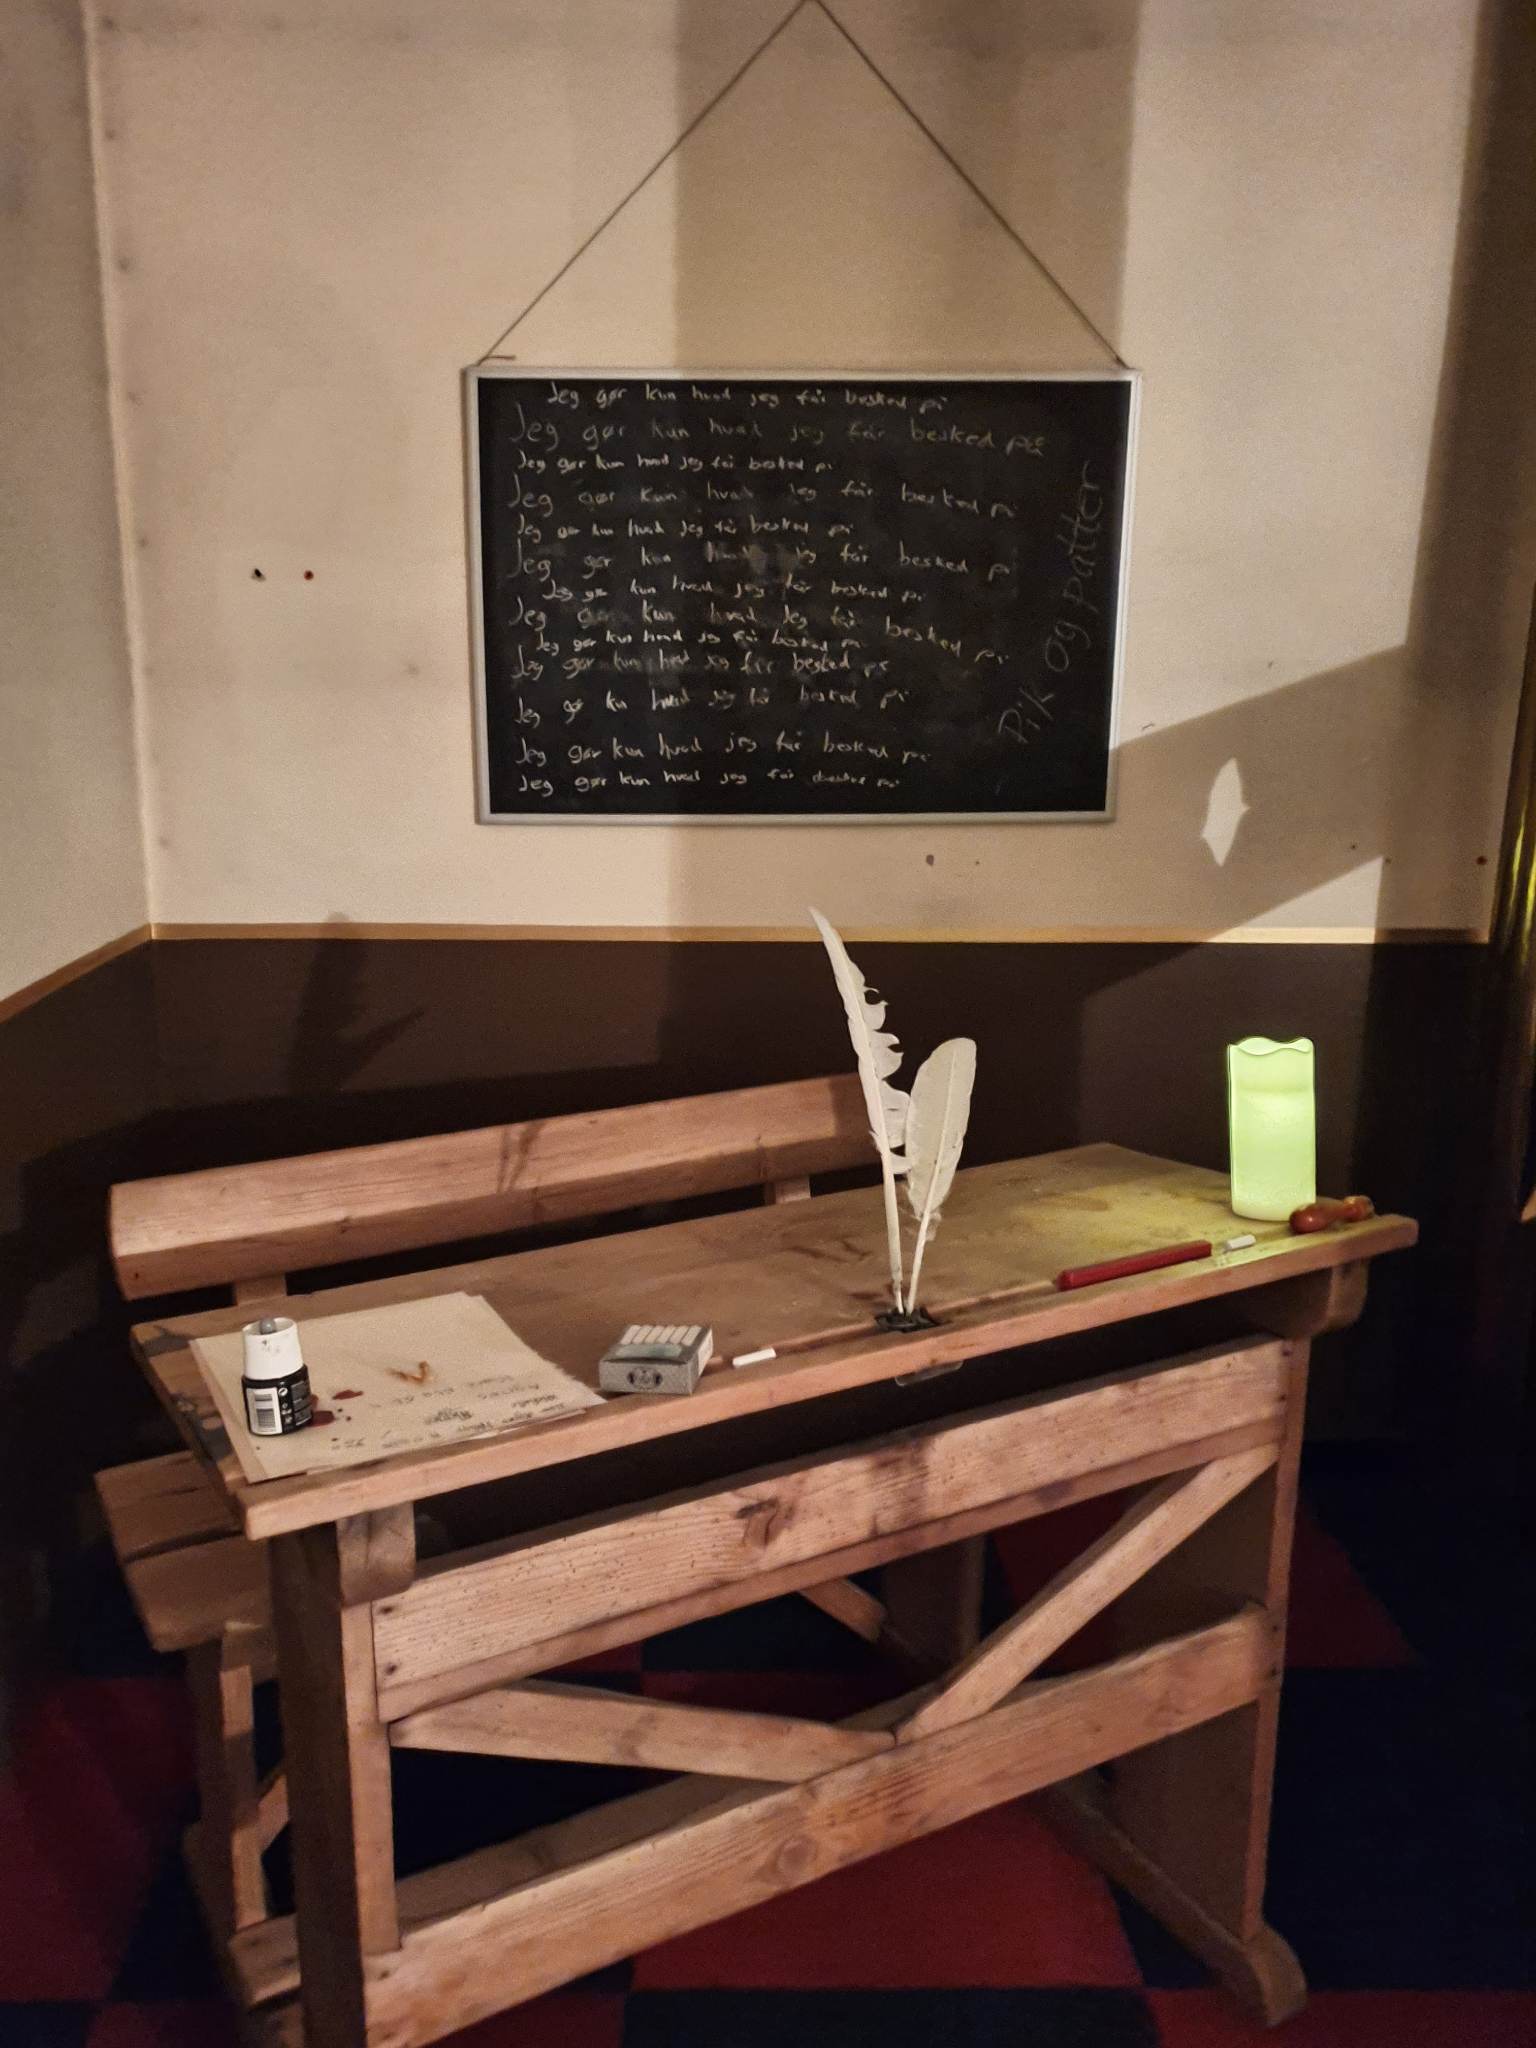 Jeg gør kun hvad jeg får besked på
Jeg gør kun hvad jeg får besked på
Jeg gør kun hvad jeg får besked på
Jeg gør kun hvad jeg får besked på
Jeg gør kun hvad jeg får besked på
Jeg gør kun hvad jeg får besked på
Jeg gør kun hvad jeg får besked på
Jeg gør kun hvad jeg får besked på
Jeg gør kun hvad jeg får besked på
Jeg gør kun hvad jeg får besked på
Jeg gør kun hvad jeg får besked på
Jeg gør kun hvad jeg får besked på
Jeg gør kun hvad jeg får på
Pik og patter